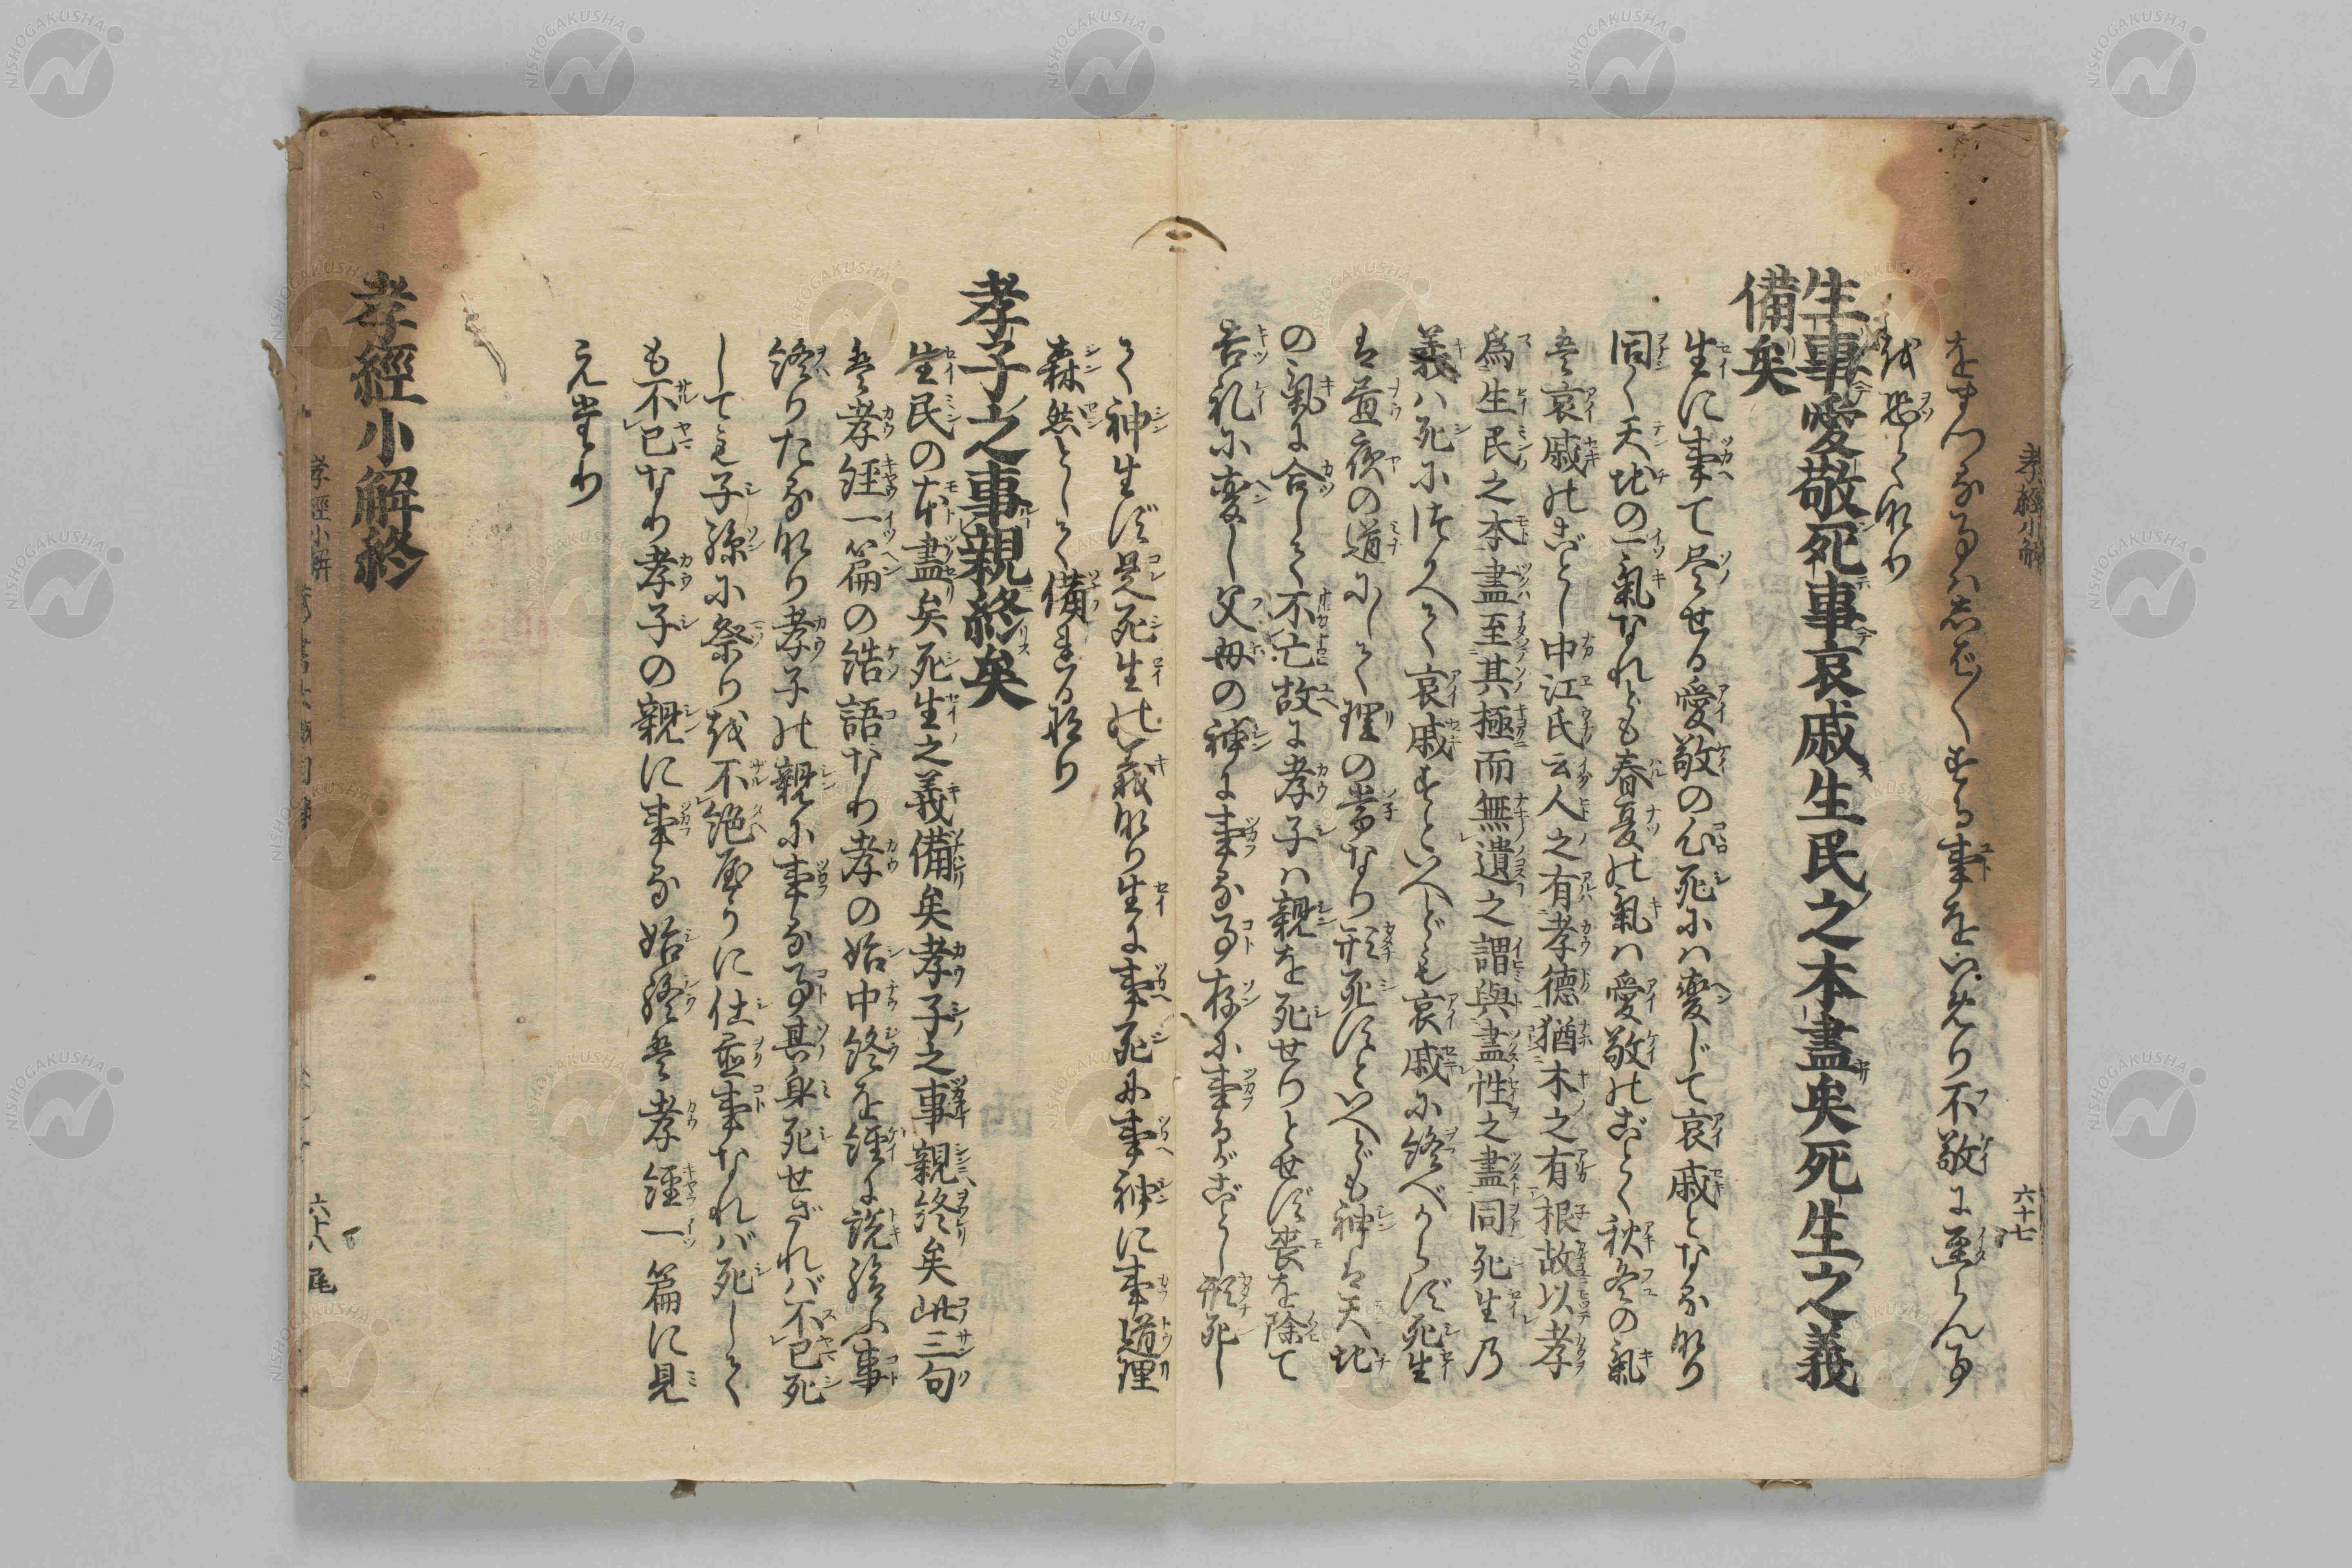 孝經小解
六十七
をまつる事ハしば〱する事をいめり不敬に至らん事
を恐てなり
生事愛敬死事哀戚生民之本盡矣死生之義
備矣
生に事て尽せる愛敬の心死にハ變じて哀戚となるなり
同く天地の一氣なれども春夏の氣ハ愛敬のごとく秋冬の氣
は哀戚のごとし中江氏云人之有孝德猶木之有根故以孝
爲生民之本盡至其極而無遺之謂與盡性之盡同死生乃
義ハ死にはかへて哀戚すといへども哀戚に終べからず死生
は昼夜の道にして理の常なり形死すといへども神は天地
の氣に合して不亡故に孝子ハ親を死せりとせず喪を除て
吉礼に変し父母の神に事る事存に事るがごとし形死し
て神生ず是死生の義なり生に事死に事神に事道理
森然として備はるなり
孝子之事親終矣
生民の本盡矣死生之義備矣孝子之事親終矣此三句
は孝經一篇の結語なり孝の始中終を經に説給ふ事
終りたるなり孝子の親に事る事其身死せざれバ不已死
しても子孫に祭りを不絶やうに仕置事なれバ死して
も不已なり孝子の親に事る始終は孝經一篇に見
え
孝經小解終
孝經小解
六十八尾
NISHOGAKUSHA